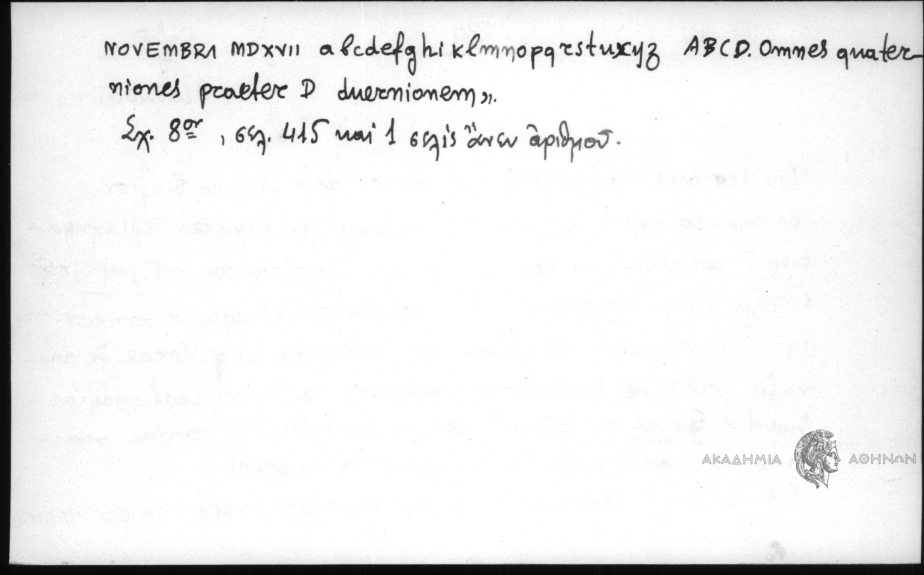 NOVEMBRI MDXVII abcdefghiklmnopqrstuxyz ABCD. Omnes quater
niones praeter D duernionem».
Σχ. 8ον, σελ. 415 καὶ 1 σελὶς ἄνευ ἀριθμοῦ.
ΑΚΑΔΗΜΙΑ ΑΘΗΝΩΝ